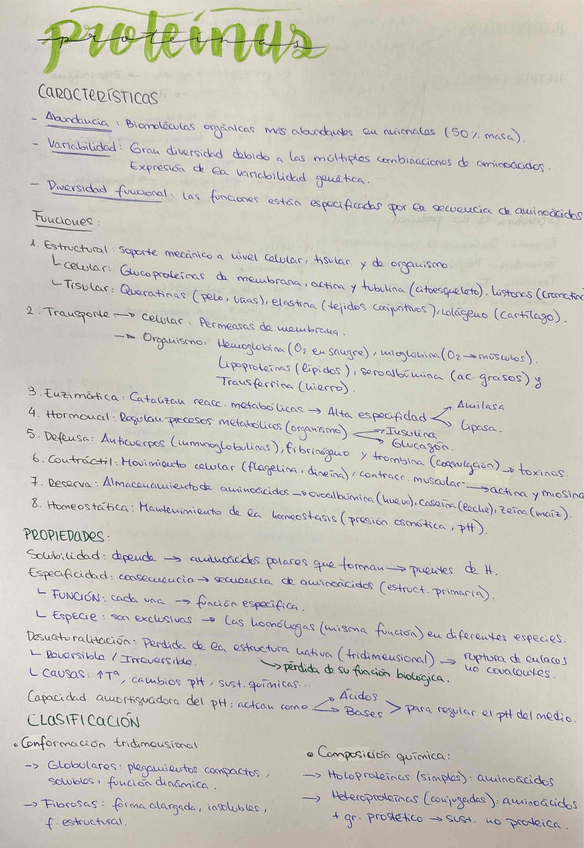 proteínas
CARACTERÍSTICAS
- Abundancia : Biomoléculas orgánicas más abundantes en animales (50% masa).
- Variabilidad : Gran diversidad debido a las múltiples combinaciones de aminoácidos.
Expresión de la variabilidad genética.
- Diversidad funcional : las funciones están especificadas por la secuencia de aminoácidos
Funciones :
1. Estructural : soporte mecánico a nivel celular, tisular y de organismo.
└ celular : Glucoproteínas de membrana, actina y tubulina (citoesqueleto). histonas (cromatina
└ Tisular : Queratinas (pelo, uñas), elastina (tejidos conjuntivos), colágeno (cartílago).
2. Transporte → celular : Permeasas de membrana.
→ Organismo : Hemoglobina (O₂ en sangre), mioglobina (O₂ → músculos).
Lipoproteínas (lípidos), seroalbúmina (ac. grasos) y
Transferrina (hierro).
3. Enzimática : Catalizan reacc. metabólicas → Alta especifidad → Amilasa
→ Lipasa.
4. Hormonal : Regulan procesos metabólicos (organismo) → Insulina
→ Glucagón.
5. Defensa : Anticuerpos (inmunoglobulinas), fibrinógeno y trombina (coagulación) → toxinas.
6. Contráctil : Movimiento celular (flagelina, dineína), contracc. muscular → actina y miosina
7. Reserva : Almacenamiento de aminoácidos → ovoalbúmina (huevo), caseína (leche), zeína (maíz).
8. Homeostática : Mantenimiento de la homeostasis (presión osmótica, pH).
PROPIEDADES :
Solubilidad : depende → aminoácidos polares que forman → puentes de H.
Especificidad : consecuencia → secuencia de aminoácidos (estruct. primaria).
└ FUNCIÓN : cada una → función específica.
└ ESPECIE : son exclusivas → las homólogas (misma función) en diferentes especies.
Desnaturalización : Pérdida de la estructura nativa (tridimensional) → ruptura de enlaces
no covalentes.
└ Reversible / Irreversible. → pérdida de su función biológica.
└ CAUSAS : ↑Tª, cambios pH, sust. químicas...
Capacidad amortiguadora del pH : actúan como < Ácidos
Bases > para regular el pH del medio.
CLASIFICACIÓN
• Conformación tridimensional
-> Globulares : plegamientos compactos,
solubles, función dinámica.
-> Fibrosas : forma alargada, insolubles,
f. estructural.
• Composición química :
→ Holoproteínas (simples) : aminoácidos
→ Heteroproteínas (conjugadas) : aminoácidos
+ gr. prostético → sust. no proteica.